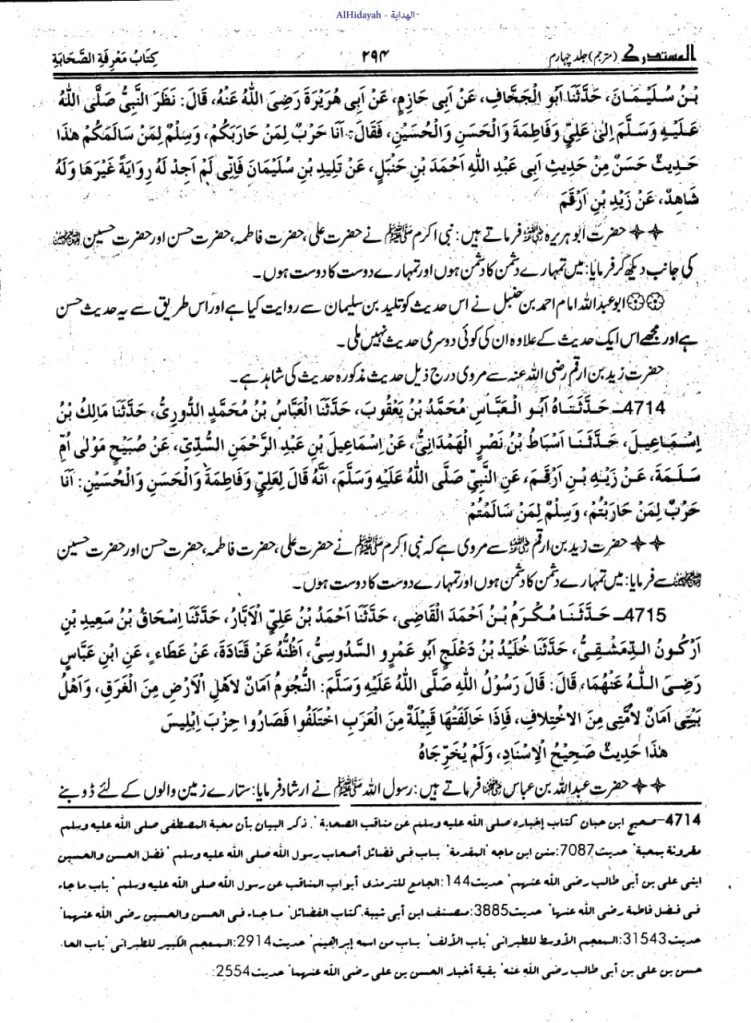 AlHidayah - الهداية
المستدرک (مترجم) جلد چہارم ۲۹۴ كِتَابُ مَعْرِفَةِ الصَّحَابَةِ
بْنُ سُلَيْمَانَ، حَدَّثَنَا اَبُو الْجَحَّافِ، عَنْ اَبِي حَازِمٍ، عَنْ اَبِي هُرَيْرَةَ رَضِيَ اللّٰهُ عَنْهُ، قَالَ: نَظَرَ النَّبِيُّ صَلَّى اللّٰهُ
عَلَيْهِ وَسَلَّمَ اِلٰى عَلِيٍّ وَفَاطِمَةَ وَالْحَسَنِ وَالْحُسَيْنِ، فَقَالَ: اَنَا حَرْبٌ لِمَنْ حَارَبَكُمْ، وَسِلْمٌ لِمَنْ سَالَمَكُمْ هٰذَا
حَدِيثٌ حَسَنٌ مِنْ حَدِيثِ اَبِي عَبْدِ اللّٰهِ اَحْمَدَ بْنِ حَنْبَلٍ، عَنْ تَلِيدِ بْنِ سُلَيْمَانَ فَاِنِّي لَمْ اَجِدْ لَهُ رِوَايَةً غَيْرَهَا وَلَهُ
شَاهِدٌ، عَنْ زَيْدِ بْنِ اَرْقَمَ
✦✦ حضرت ابوہریرہ رضی اللہ عنہ فرماتے ہیں: نبی اکرم ﷺ نے حضرت علی، حضرت فاطمہ، حضرت حسن اور حضرت حسین رضی اللہ عنہم
کی جانب دیکھ کر فرمایا: میں تمہارے دشمن کا دشمن ہوں اور تمہارے دوست کا دوست ہوں۔
۞۞ ابوعبداللہ امام احمد بن حنبل نے اس حدیث کو تلید بن سلیمان سے روایت کیا ہے اور اس طریق سے یہ حدیث حسن
ہے اور مجھے اس ایک حدیث کے علاوہ ان کی کوئی دوسری حدیث نہیں ملی۔
حضرت زید بن ارقم رضی اللہ عنہ سے مروی درج ذیل حدیث مذکورہ حدیث کی شاہد ہے۔
4714ـ حَدَّثَنَاهُ اَبُو الْعَبَّاسِ مُحَمَّدُ بْنُ يَعْقُوبَ، حَدَّثَنَا الْعَبَّاسُ بْنُ مُحَمَّدٍ الدُّورِيُّ، حَدَّثَنَا مَالِكُ بْنُ
اِسْمَاعِيلَ، حَدَّثَنَا اَسْبَاطُ بْنُ نَصْرٍ الْهَمْدَانِيُّ، عَنْ اِسْمَاعِيلَ بْنِ عَبْدِ الرَّحْمٰنِ السُّدِّيِّ، عَنْ صُبَيْحٍ مَوْلٰى اُمِّ
سَلَمَةَ، عَنْ زَيْدِ بْنِ اَرْقَمَ، عَنِ النَّبِيِّ صَلَّى اللّٰهُ عَلَيْهِ وَسَلَّمَ، اَنَّهُ قَالَ لِعَلِيٍّ وَفَاطِمَةَ وَالْحَسَنِ وَالْحُسَيْنِ: اَنَا
حَرْبٌ لِمَنْ حَارَبْتُمْ، وَسِلْمٌ لِمَنْ سَالَمْتُمْ
✦✦ حضرت زید بن ارقم رضی اللہ عنہ سے مروی ہے کہ نبی اکرم ﷺ نے حضرت علی، حضرت فاطمہ، حضرت حسن اور حضرت حسین
رضی اللہ عنہم سے فرمایا: میں تمہارے دشمن کا دشمن ہوں اور تمہارے دوست کا دوست ہوں۔
4715ـ حَدَّثَنَا مُكْرَمُ بْنُ اَحْمَدَ الْقَاضِي، حَدَّثَنَا اَحْمَدُ بْنُ عَلِيٍّ الْاَبَّارُ، حَدَّثَنَا اِسْحَاقُ بْنُ سَعِيدِ بْنِ
اَرْكُونُ الدِّمَشْقِيُّ، حَدَّثَنَا خُلَيْدُ بْنُ دَعْلَجٍ اَبُو عَمْرٍو السَّدُوسِيُّ، اَظُنُّهُ عَنْ قَتَادَةَ، عَنْ عَطَاءٍ، عَنِ ابْنِ عَبَّاسٍ
رَضِيَ اللّٰهُ عَنْهُمَا، قَالَ: قَالَ رَسُولُ اللّٰهِ صَلَّى اللّٰهُ عَلَيْهِ وَسَلَّمَ: النُّجُومُ اَمَانٌ لِاَهْلِ الْاَرْضِ مِنَ الْغَرَقِ، وَاَهْلُ
بَيْتِي اَمَانٌ لِاُمَّتِي مِنَ الْاِخْتِلَافِ، فَاِذَا خَالَفَتْهَا قَبِيلَةٌ مِنَ الْعَرَبِ اخْتَلَفُوا فَصَارُوا حِزْبَ اِبْلِيسَ
هٰذَا حَدِيثٌ صَحِيحُ الْاِسْنَادِ، وَلَمْ يُخَرِّجَاهُ
✦✦ حضرت عبداللہ بن عباس رضی اللہ عنہما فرماتے ہیں: رسول اللہ ﷺ نے ارشاد فرمایا: ستارے زمین والوں کے لئے ڈوبنے
4714-صحيح ابن حبان كتاب إخباره صلى الله عليه وسلم عن مناقب الصحابة' ذكر البيان بأن محبة المصطفى صلى الله عليه وسلم
مقرونة بمحبة' حديث7087:سنن ابن ماجه 'المقدمة' باب فى فضائل أصحاب رسول الله صلى الله عليه وسلم ' فضل الحسن والحسين
ابنى على بن أبى طالب رضى الله عنهم' حديث144:الجامع للترمذى أبواب المناقب عن رسول الله صلى الله عليه وسلم ' باب ما جاء
فى فضل فاطمة رضى الله عنها' حديث3885:مصنف ابن أبى شيبة' كتاب الفضائل' ما جاء فى الحسن والحسين رضى الله عنهما'
حديث31543:المعجم الأوسط للطبرانى 'باب الألف' باب من اسمه إبراهيم' حديث2914:المعجم الكبير للطبرانى 'باب الحاء
حسن بن على بن أبى طالب رضى الله عنه' بقية أخبار الحسن بن على رضى الله عنهما' حديث2554: